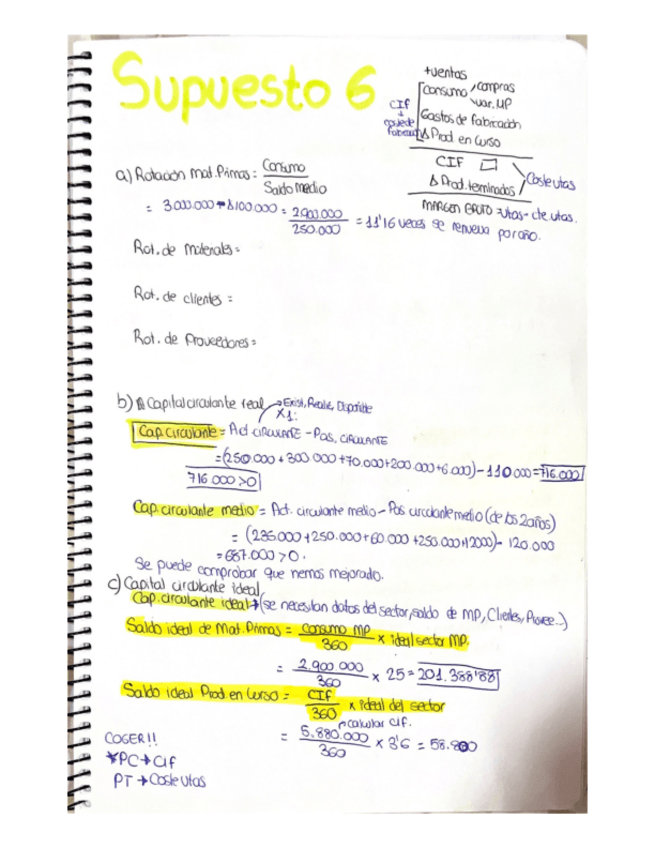 Supuesto 6
+ventas
Consumo compras
var. MP
CIF
Gastos de fabricación
Δ Prod. en curso
CIF
Δ Prod. terminados
Coste vtas
MARGEN BRUTO = vtas - cte vtas.
a) Rotación Mat. Primas = Consumo
Saldo medio
= 3.000.000 - Δ100.000 = 2.900.000
250.000
= 11'16 veces se renueva por año.
Rot. de materiales =
Rot. de clientes =
Rot. de Proveedores =
b) Capital circulante real → Exist, Realiz, Disponible
X1:
Cap. Circulante = Act CIRCULANTE - Pas. CIRCULANTE
= (250.000 + 300.000 + 70.000 + 200.000 + 6.000) - 110.000 = 716.000
716.000 > 0
Cap. circulante medio = Act. circulante medio - Pas circulante medio (de los 2 años)
= (235.000 + 250.000 + 60.000 + 250.000 + 12000) - 120.000
= 687.000 > 0.
Se puede comprobar que hemos mejorado.
c) Capital circulante ideal
Cap. circulante ideal → (se necesitan datos del sector, saldo de MP, Clientes, Provee...)
Saldo ideal de Mat. Primas = Consumo MP
360
x ideal sector MP.
= 2.900.000
360
x 25 = 201.388'88
Saldo ideal Prod. en Curso = CIF
360
x ideal del sector
calcular CIF.
= 5.880.000
360
x 3'6 = 58.800
COGER!!
*PC → CIF
PT → Coste Vtas